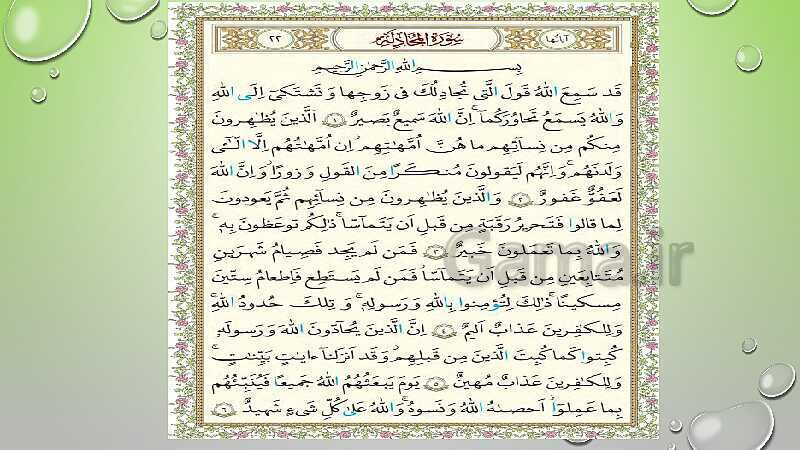 آیاتها سورة المجادلة ٢٢
بِسْمِ اللهِ الرَّحْمٰنِ الرَّحِيمِ
قَد سَمِعَ اللهُ قَولَ الَّتى تُجادِلُكَ فى زَوجِها وَ تَشتَكىٓ اِلَى اللهِ
وَ اللهُ يَسمَعُ تَحاوُرَكُمآ اِنَّ اللهَ سَميعٌ بَصيرٌ ١ اَلَّذينَ يُظٰهِرونَ
مِنكُم مِن نِسآئِهِم ما هُنَّ اُمَّهٰتِهِم اِن اُمَّهٰتُهُم اِلَّا الّٰٓئى
وَلَدنَهُم وَ اِنَّهُم لَيَقولونَ مُنكَرًا مِنَ القَولِ وَ زورًا وَ اِنَّ اللهَ
لَعَفُوٌّ غَفورٌ ٢ وَ الَّذينَ يُظٰهِرونَ مِن نِسآئِهِم ثُمَّ يَعودونَ
لِما قالوا فَتَحريرُ رَقَبَةٍ مِن قَبلِ اَن يَتَمآسّا ذٰلِكُم توعَظونَ بِه
وَ اللهُ بِما تَعمَلونَ خَبيرٌ ٣ فَمَن لَم يَجِد فَصِيامُ شَهرَينِ
مُتَتابِعَينِ مِن قَبلِ اَن يَتَمآسّا فَمَن لَم يَستَطِع فَاِطعامُ سِتّينَ
مِسكينًا ذٰلِكَ لِتُؤمِنوا بِاللهِ وَ رَسولِه وَ تِلكَ حُدودُ اللهِ
وَ لِلكٰفِرينَ عَذابٌ اَليمٌ ٤ اِنَّ الَّذينَ يُحآدّونَ اللهَ وَ رَسولَه
كُبِتوا كَما كُبِتَ الَّذينَ مِن قَبلِهِم وَ قَد اَنزَلنآ ءايٰتٍ بَيِّنٰتٍ
وَ لِلكٰفِرينَ عَذابٌ مُهينٌ ٥ يَومَ يَبعَثُهُمُ اللهُ جَميعًا فَيُنَبِّئُهُم
بِما عَمِلوا اَحصٰهُ اللهُ وَ نَسوهُ وَ اللهُ عَلىٰ كُلِّ شَىءٍ شَهيدٌ ٦
Gama.ir